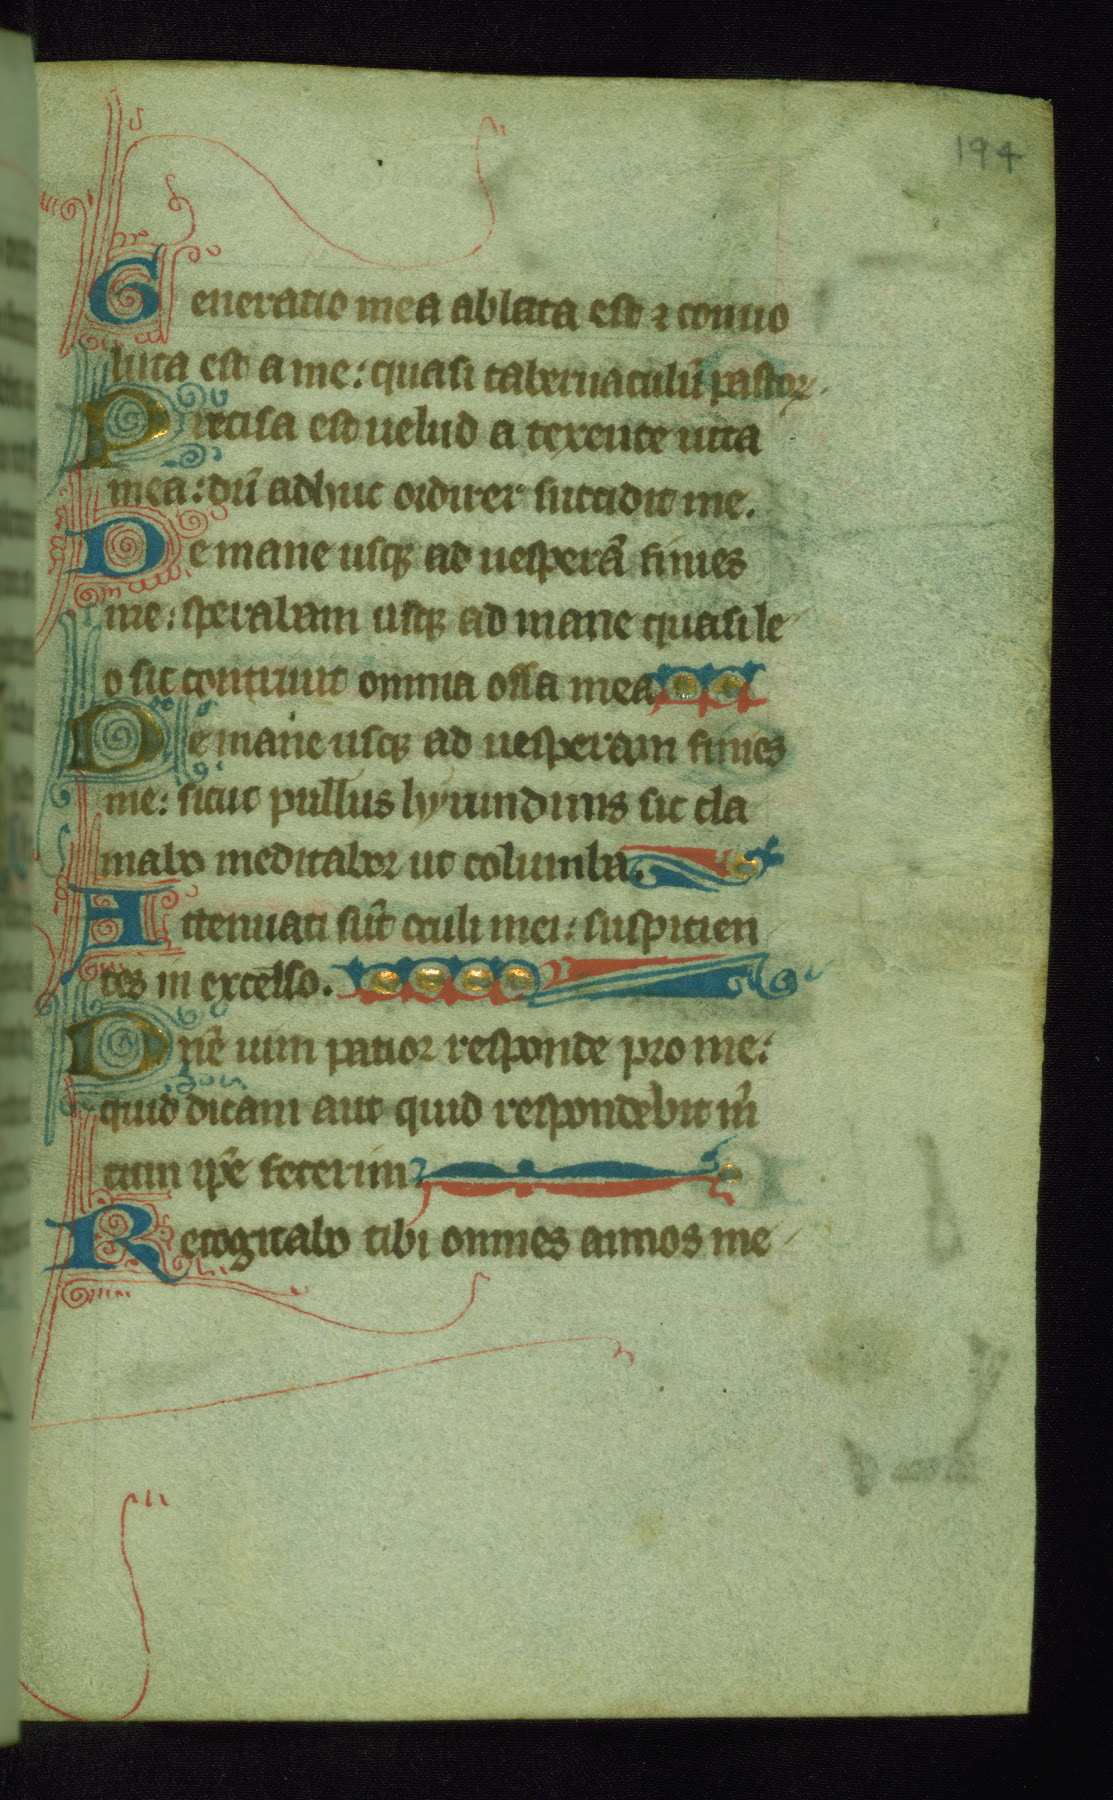 194
Generatio mea ablata est ⁊ conuo
luta est a me: quasi tabernaculū pastoꝝ.
Precisa est uelud a texente uita
mea: dū adhuc ordirer succidit me.
De mane usqꝫ ad uesperā finies
me: sperabam usqꝫ ad mane quasi le
o sic contriuit omnia ossa mea
De mane usqꝫ ad uesperam finies
me: sicut pullus hyrundinis sic cla
mabo meditabor ut columba.
Attenuati sūt oculi mei: suspicien
tes in excelso.
Dn̄e uim patior responde pro me:
quid dicam aut quid respondebit m̄
cum ip̄e fecerim
Recogitabo tibi omnes annos me